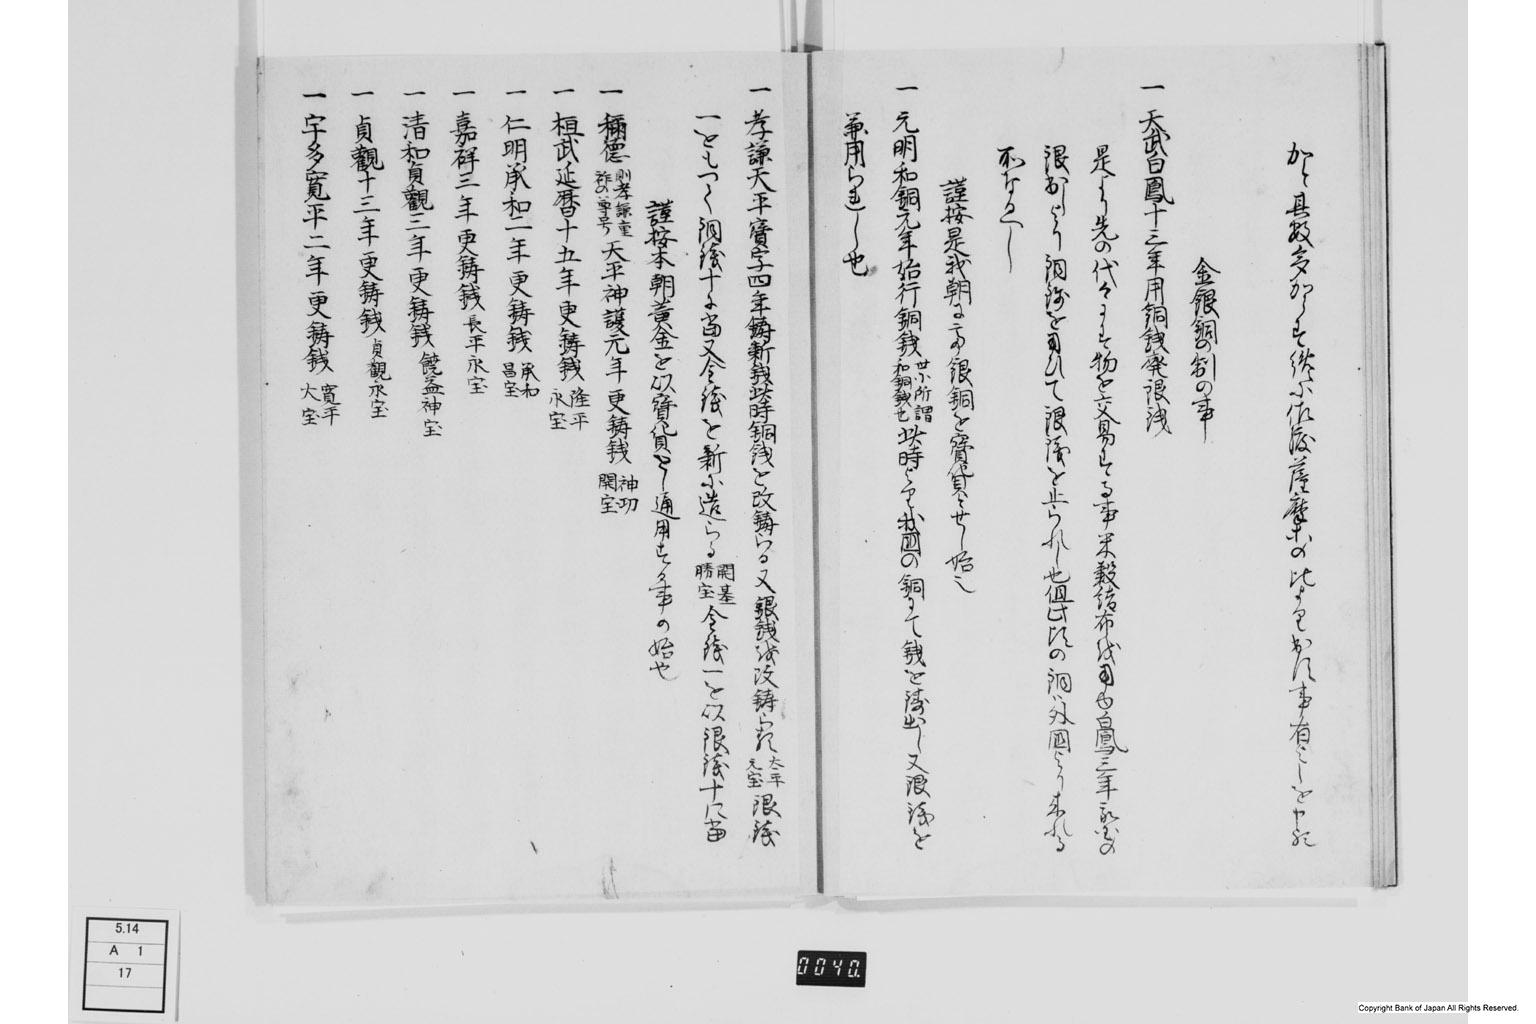 加え其数多からす繰小佐渡薩摩等の比より出す事有としを申死
金銀銅の割の事
一 天武白鳳十三年用銅銭廃銀銭
是より先の代々にハ物を交易する事米穀絹布等を用ゆ白鳳三年対馬の
銀出しより銅銭を用ひて銀銭を止られし也但此頃の銅ハ外国より来れる
所なるへし
謹按是我朝にて銀銅を寳貨とせし始也
一 元明和銅元年始行銅銭 世に所謂和銅銭也 此時より我国の銅にて銭を鋳出し又銀銭を
兼用られし也
一 孝謙天平寳字四年鋳新銭此時銅銭を改鋳らる又銀銭を改鋳らる 大平元宝 銀銭
一をもつて銅銭十に当又金銭を新に造らる 開基勝宝 金銭一を以銀銭十に当
謹按本朝黄金を以寳貨とし通用する事の始也
一 稱徳 則孝謙重祚の尊号 天平神護元年更鋳銭 神功開宝
一 桓武延暦十五年更鋳銭 隆平永宝
一 仁明承和二年更鋳銭 承和昌宝
一 嘉祥三年更鋳銭 長平永宝
一 清和貞觀三年更鋳銭 饒益神宝
一 貞觀十三年更鋳銭 貞觀永宝
一 宇多寛平二年更鋳銭 寛平大宝
5.14
A 1
17
0040
Copyright Bank of Japan All Rights Reserved.